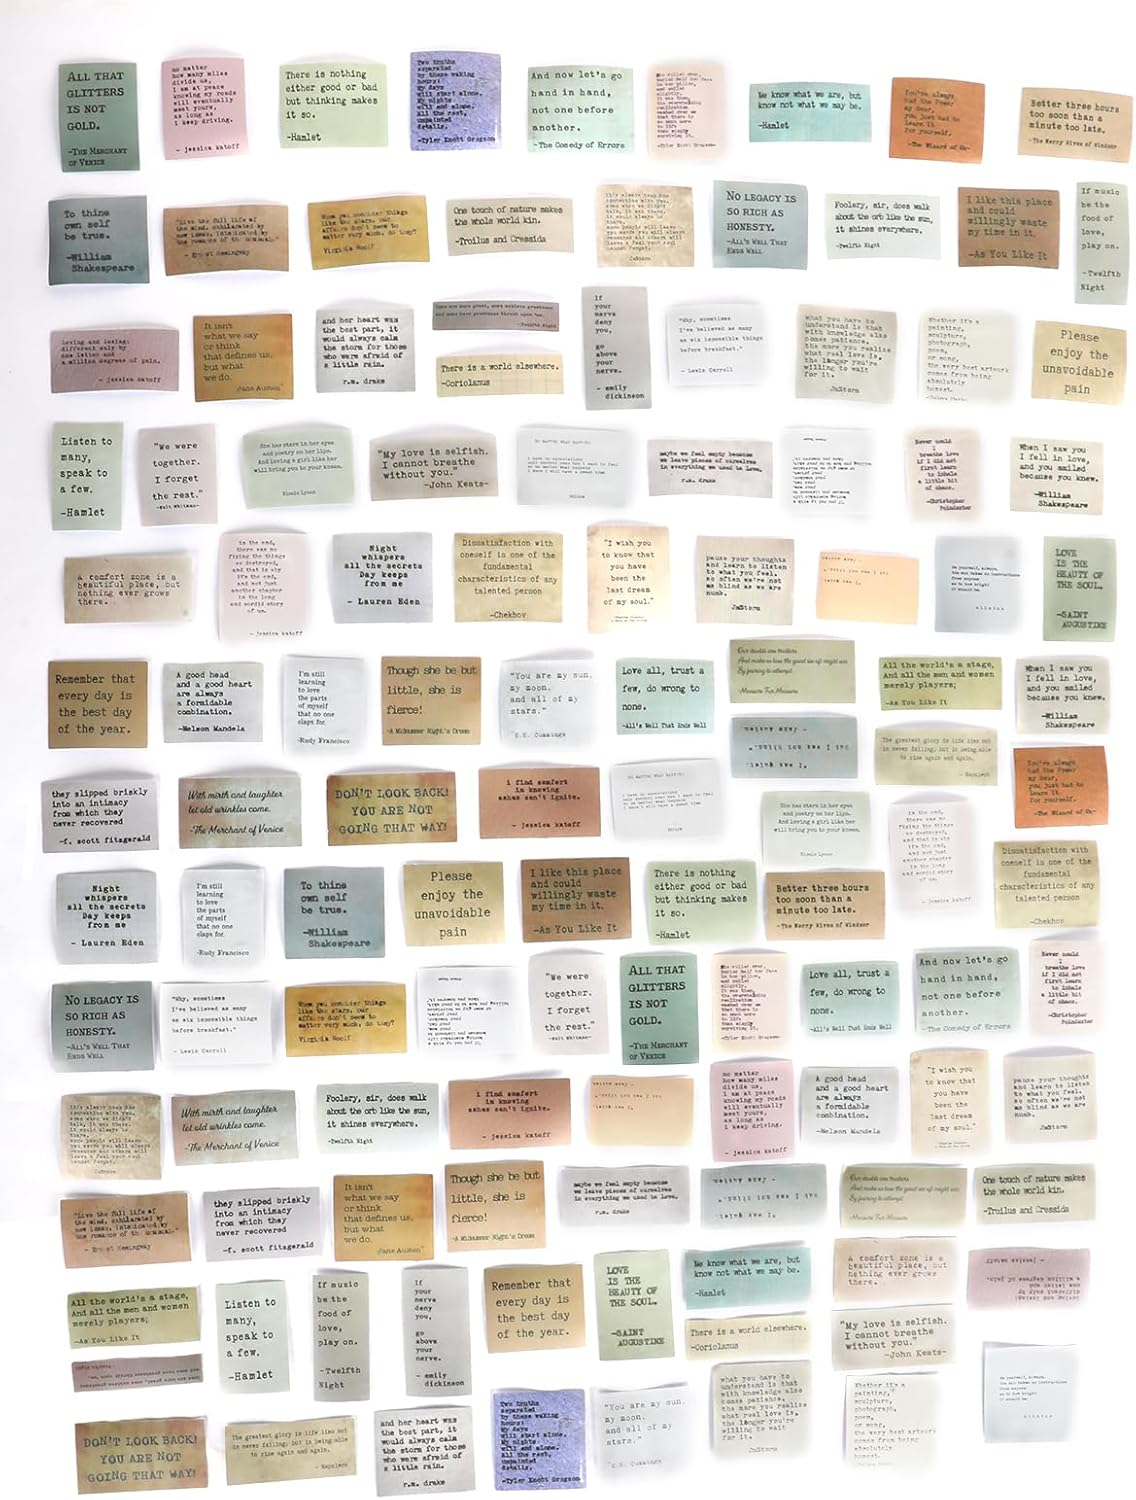 ALL THAT
GLITTERS
IS NOT
GOLD.
-THE MERCHANT
OF VENICE
no matter
how many miles
divide us,
I am at peace
knowing my roads
will eventually
meet yours,
as long as
I keep driving.
- jessica katoff
There is nothing
either good or bad
but thinking makes
it so.
-Hamlet
Two truths
separated
by these waking
hours:
my days
will start alone.
My nights
will end alone.
All the rest,
unpainted
details.
-Tyler Knott Gregson
And now let's go
hand in hand,
not one before
another.
-The Comedy of Errors
We know what we are, but
know not what we may be.
-Hamlet
You've always
had the Power
my dear,
you just had to
learn it
for yourself.
-The Wizard of Oz-
Better three hours
too soon than a
minute too late.
-The Merry Wives of Windsor
To thine
own self
be true.
-William
Shakespeare
"Live the full life of
the mind, exhilarated by
new ideas, intoxicated by
the romance of the unusual."
- Ernest Hemingway
When you consider things
like the stars, our
affairs don't seem to
matter very much, do they?
Virginia Woolf
One touch of nature makes
the whole world kin.
-Troilus and Cressida
NO LEGACY IS
SO RICH AS
HONESTY.
-ALL'S WELL THAT
ENDS WELL
Foolery, sir, does walk
about the orb like the sun,
it shines everywhere.
-Twelfth Night
I like this place
and could
willingly waste
my time in it.
-As You Like It
If music
be the
food of
love,
play on.
-Twelfth
Night
Loving and losing:
different only by
one letter and
a million degrees of pain.
- jessica katoff
It isn't
what we say
or think
that defines us,
but what
we do.
Jane Austen
and her heart was
the best part, it
would always calm
the storm for those
who were afraid of
a little rain.
r.m. drake
Some are born great, some achieve greatness
and some have greatness thrust upon 'em.
-Twelfth Night
There is a world elsewhere.
-Coriolanus
If
your
nerve
deny
you,
go
above
your
nerve.
- emily
dickinson
"Why, sometimes
I've believed as many
as six impossible things
before breakfast."
- Lewis Carroll
what you have to
understand is that
with knowledge also
comes patience.
the more you realize
what real love is,
the longer you're
willing to wait
for it.
JmStorm
Whether it's a
painting,
sculpture,
photograph,
poem,
or song,
the very best artwork
comes from being
absolutely
honest.
Please
enjoy the
unavoidable
pain
Listen to
many,
speak to
a few.
-Hamlet
"We were
together.
I forget
the rest."
-Walt Whitman-
She has stars in her eyes
and poetry on her lips.
And loving a girl like her
will bring you to your knees.
Nicole Lyons
"My love is selfish.
I cannot breathe
without you."
-John Keats-
NO MATTER WHAT HAPPENS
maybe we feel empty because
we leave pieces of ourselves
in everything we used to love.
r.m. drake
Never could
I
breathe love
if I did not
first learn
to inhale
a little bit
of chaos.
-Christopher
Poindexter
When I saw you
I fell in love,
and you smiled
because you knew.
-William
Shakespeare
A comfort zone is a
beautiful place, but
nothing ever grows
there.
in the end,
there was no
fixing the things
so destroyed,
and that is why
it's the end,
and not just
another chapter
in the long
and sordid story
of us.
- jessica katoff
Night
whispers
all the secrets
Day keeps
from me
- Lauren Eden
Dissatisfaction with
oneself is one of the
fundamental
characteristics of any
talented person
-Chekhov
"I wish you
to know that
you have
been the
last dream
of my soul."
pause your thoughts
and learn to listen
to what you feel.
so often we're not
as blind as we are
numb.
JmStorm
LOVE
IS THE
BEAUTY OF
THE SOUL.
-SAINT
AUGUSTINE
Remember that
every day is
the best day
of the year.
A good head
and a good heart
are always
a formidable
combination.
-Nelson Mandela
I'm still
learning
to love
the parts
of myself
that no one
claps for.
-Rudy Francisco
Though she be but
little, she is
fierce!
-A Midsummer Night's Dream
"You are my sun,
my moon,
and all of my
stars."
-E.E. Cummings
Love all, trust a
few, do wrong to
none.
-All's Well That Ends Well
Our doubts are traitors,
And make us lose the good we oft might win
By fearing to attempt.
-Measure For Measure
All the world's a stage,
And all the men and women
merely players;
-As You Like It
When I saw you
I fell in love,
and you smiled
because you knew.
-William
Shakespeare
The greatest glory in life lies not
in never falling, but in being able
to rise again and again.
- Napoleon
You've always
had the Power
my dear,
you just had to
learn it
for yourself.
-The Wizard of Oz-
they slipped briskly
into an intimacy
from which they
never recovered
-f. scott fitzgerald
With mirth and laughter
let old wrinkles come.
-The Merchant of Venice
DON'T LOOK BACK!
YOU ARE NOT
GOING THAT WAY!
i find comfort
in knowing
ashes can't ignite.
- jessica katoff
NO MATTER WHAT HAPPENS
She has stars in her eyes
and poetry on her lips.
And loving a girl like her
will bring you to your knees.
Nicole Lyons
in the end,
there was no
fixing the things
so destroyed,
and that is why
it's the end,
and not just
another chapter
in the long
and sordid story
of us.
- jessica katoff
Dissatisfaction with
oneself is one of the
fundamental
characteristics of any
talented person
-Chekhov
Night
whispers
all the secrets
Day keeps
from me
- Lauren Eden
I'm still
learning
to love
the parts
of myself
that no one
claps for.
-Rudy Francisco
To thine
own self
be true.
-William
Shakespeare
Please
enjoy the
unavoidable
pain
I like this place
and could
willingly waste
my time in it.
-As You Like It
There is nothing
either good or bad
but thinking makes
it so.
-Hamlet
Better three hours
too soon than a
minute too late.
-The Merry Wives of Windsor
NO LEGACY IS
SO RICH AS
HONESTY.
-ALL'S WELL THAT
ENDS WELL
"Why, sometimes
I've believed as many
as six impossible things
before breakfast."
- Lewis Carroll
When you consider things
like the stars, our
affairs don't seem to
matter very much, do they?
Virginia Woolf
"We were
together.
I forget
the rest."
-Walt Whitman-
ALL THAT
GLITTERS
IS NOT
GOLD.
-THE MERCHANT
OF VENICE
Love all, trust a
few, do wrong to
none.
-All's Well That Ends Well
And now let's go
hand in hand,
not one before
another.
-The Comedy of Errors
Never could
I
breathe love
if I did not
first learn
to inhale
a little bit
of chaos.
-Christopher
Poindexter
With mirth and laughter
let old wrinkles come.
-The Merchant of Venice
Foolery, sir, does walk
about the orb like the sun,
it shines everywhere.
-Twelfth Night
i find comfort
in knowing
ashes can't ignite.
- jessica katoff
no matter
how many miles
divide us,
I am at peace
knowing my roads
will eventually
meet yours,
as long as
I keep driving.
- jessica katoff
A good head
and a good heart
are always
a formidable
combination.
-Nelson Mandela
"I wish you
to know that
you have
been the
last dream
of my soul."
pause your thoughts
and learn to listen
to what you feel.
so often we're not
as blind as we are
numb.
JmStorm
"Live the full life of
the mind, exhilarated by
new ideas, intoxicated by
the romance of the unusual."
- Ernest Hemingway
they slipped briskly
into an intimacy
from which they
never recovered
-f. scott fitzgerald
It isn't
what we say
or think
that defines us,
but what
we do.
Jane Austen
Though she be but
little, she is
fierce!
-A Midsummer Night's Dream
maybe we feel empty because
we leave pieces of ourselves
in everything we used to love.
r.m. drake
Our doubts are traitors,
And make us lose the good we oft might win
By fearing to attempt.
-Measure For Measure
One touch of nature makes
the whole world kin.
-Troilus and Cressida
All the world's a stage,
And all the men and women
merely players;
-As You Like It
Listen to
many,
speak to
a few.
-Hamlet
If music
be the
food of
love,
play on.
-Twelfth
Night
If
your
nerve
deny
you,
go
above
your
nerve.
- emily
dickinson
Remember that
every day is
the best day
of the year.
LOVE
IS THE
BEAUTY OF
THE SOUL.
-SAINT
AUGUSTINE
We know what we are, but
know not what we may be.
-Hamlet
A comfort zone is a
beautiful place, but
nothing ever grows
there.
Loving and losing:
different only by
one letter and
a million degrees of pain.
- jessica katoff
There is a world elsewhere.
-Coriolanus
"My love is selfish.
I cannot breathe
without you."
-John Keats-
DON'T LOOK BACK!
YOU ARE NOT
GOING THAT WAY!
The greatest glory in life lies not
in never falling, but in being able
to rise again and again.
- Napoleon
and her heart was
the best part, it
would always calm
the storm for those
who were afraid of
a little rain.
r.m. drake
Two truths
separated
by these waking
hours:
my days
will start alone.
My nights
will end alone.
All the rest,
unpainted
details.
-Tyler Knott Gregson
"You are my sun,
my moon,
and all of my
stars."
-E.E. Cummings
what you have to
understand is that
with knowledge also
comes patience.
the more you realize
what real love is,
the longer you're
willing to wait
for it.
JmStorm
Whether it's a
painting,
sculpture,
photograph,
poem,
or song,
the very best artwork
comes from being
absolutely
honest.